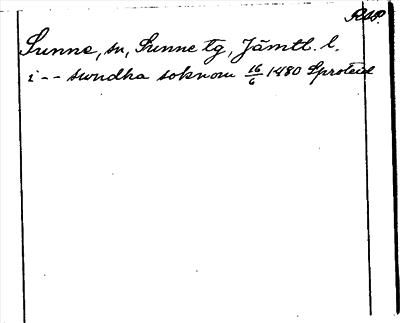 RAP.
Sunne, sn, Sunne tg, Jämtl. l.
i -- swndha soknom 16/6 1480 Sproteid